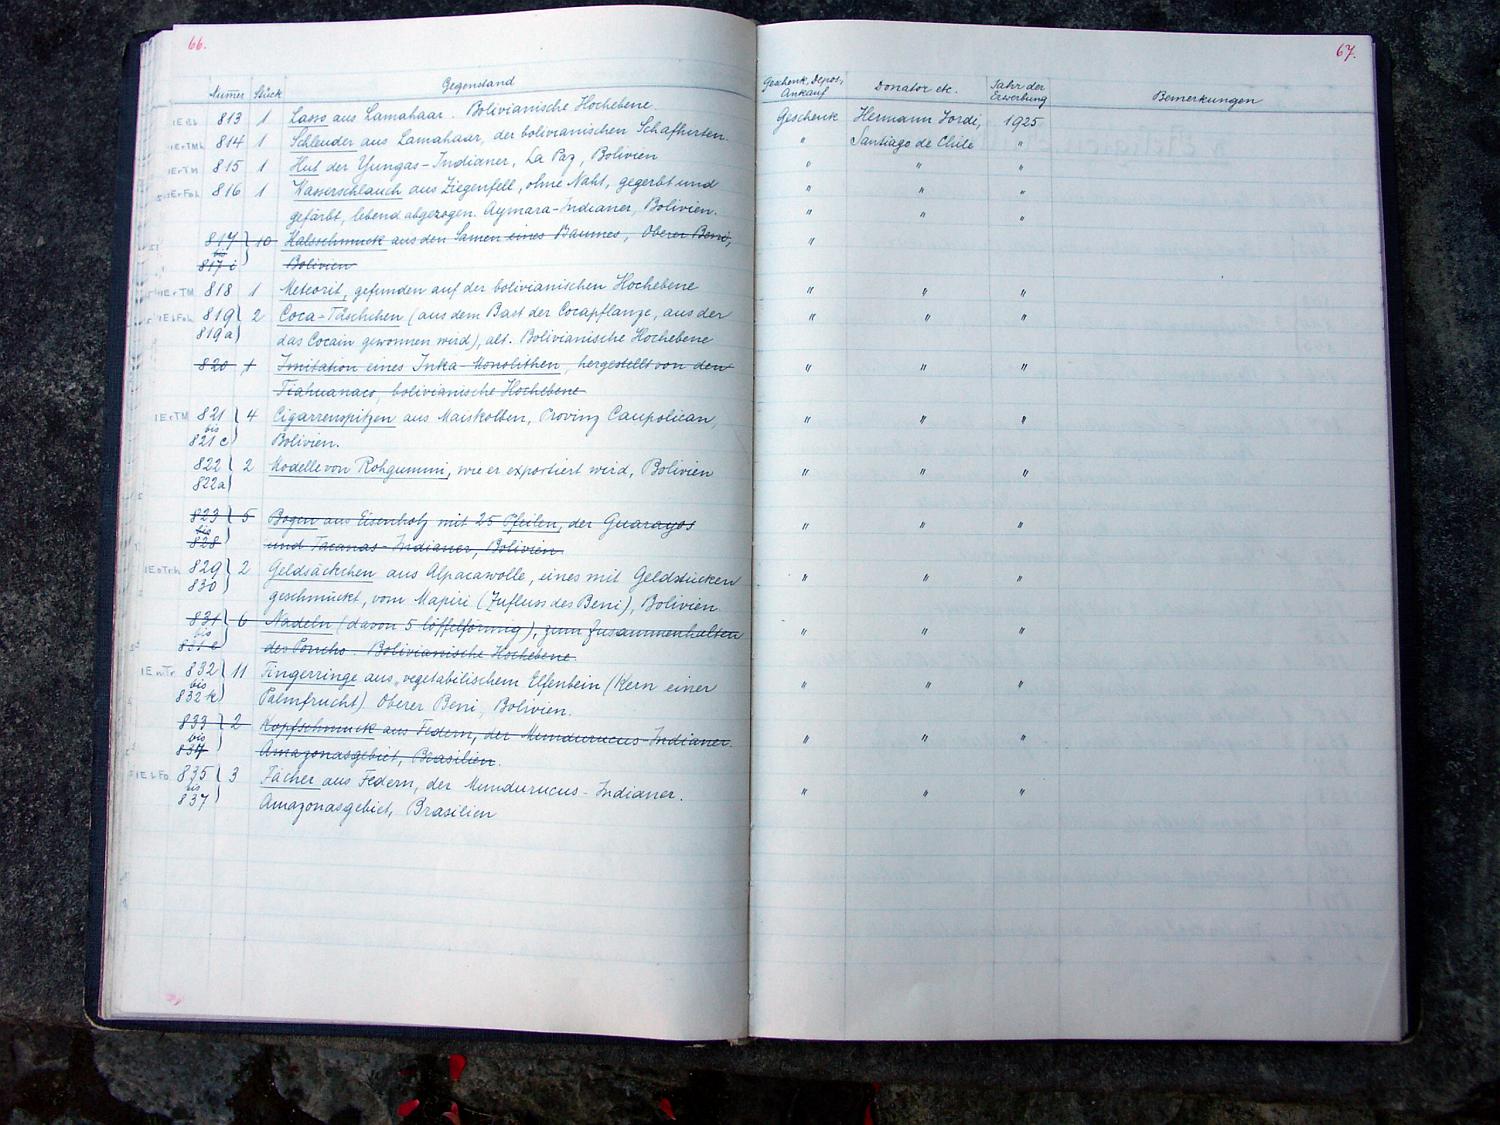 66.
Numer Stück Gegenstand
813 1 Lasso aus Lamahaar. Bolivianische Hochebene.
814 1 Schleuder aus Lamahaar, der bolivianischen Schafhirten.
815 1 Hut der Yungas-Indianer, La Paz, Bolivien
816 1 Wasserschlauch aus Ziegenfell, ohne Naht, gegerbt und
gefärbt, lebend abgezogen. Aymara-Indianer, Bolivien.
817 10 Halsschmuck aus den Samen eines Baumes, Oberer Beni,
bis
817 i Bolivien
818 1 Meteorit, gefunden auf der bolivianischen Hochebene
819 2 Coca-Täschchen (aus dem Bast der Cocapflanze, aus der
819a) das Cocain gewonnen wird), alt. Bolivianische Hochebene
820 1 Imitation eines Inka-Monolithen, hergestellt von den
Tiahuanaco, bolivianische Hochebene
821 4 Cigarrenspitzen aus Maiskolben, Provinz Caupolican,
bis
821 c Bolivien.
822 2 Modelle von Rohgummi, wie er exportiert wird, Bolivien
822a)
823 5 Bogen aus Eisenholz mit 25 Pfeilen, der Guarayos
bis
828 und Tacanas-Indianer, Bolivien.
829 2 Geldsäckchen aus Alpacawolle, eines mit Geldstücken
830 geschmückt, vom Mapiri (Zufluss des Beni), Bolivien.
831 6 Nadeln (davon 5 löffelförmig), zum Zusammenhalten
bis
831 e des Poncho. Bolivianische Hochebene.
832 11 Fingerringe aus „vegetabilischem Elfenbein (Kern einer
bis
832 k) Palmfrucht) Oberer Beni, Bolivien.
833 2 Kopfschmuck aus Federn, der Mundurucus-Indianer.
bis
834 Amazonasgebiet, Brasilien.
835 3 Fächer aus Federn, der Mundurucus-Indianer.
bis
837 Amazonasgebiet, Brasilien
67.
Geschenk, Depos, Ankauf Donator etc. Jahr der Erwerbung Bemerkungen
Geschenk Hermann Jordi, 1925
" Santiago de Chile "
" " "
" " "
" " "
"
" " "
" " "
" " "
" " "
" " "
" " "
" " "
" " "
" " "
" " "
" " "